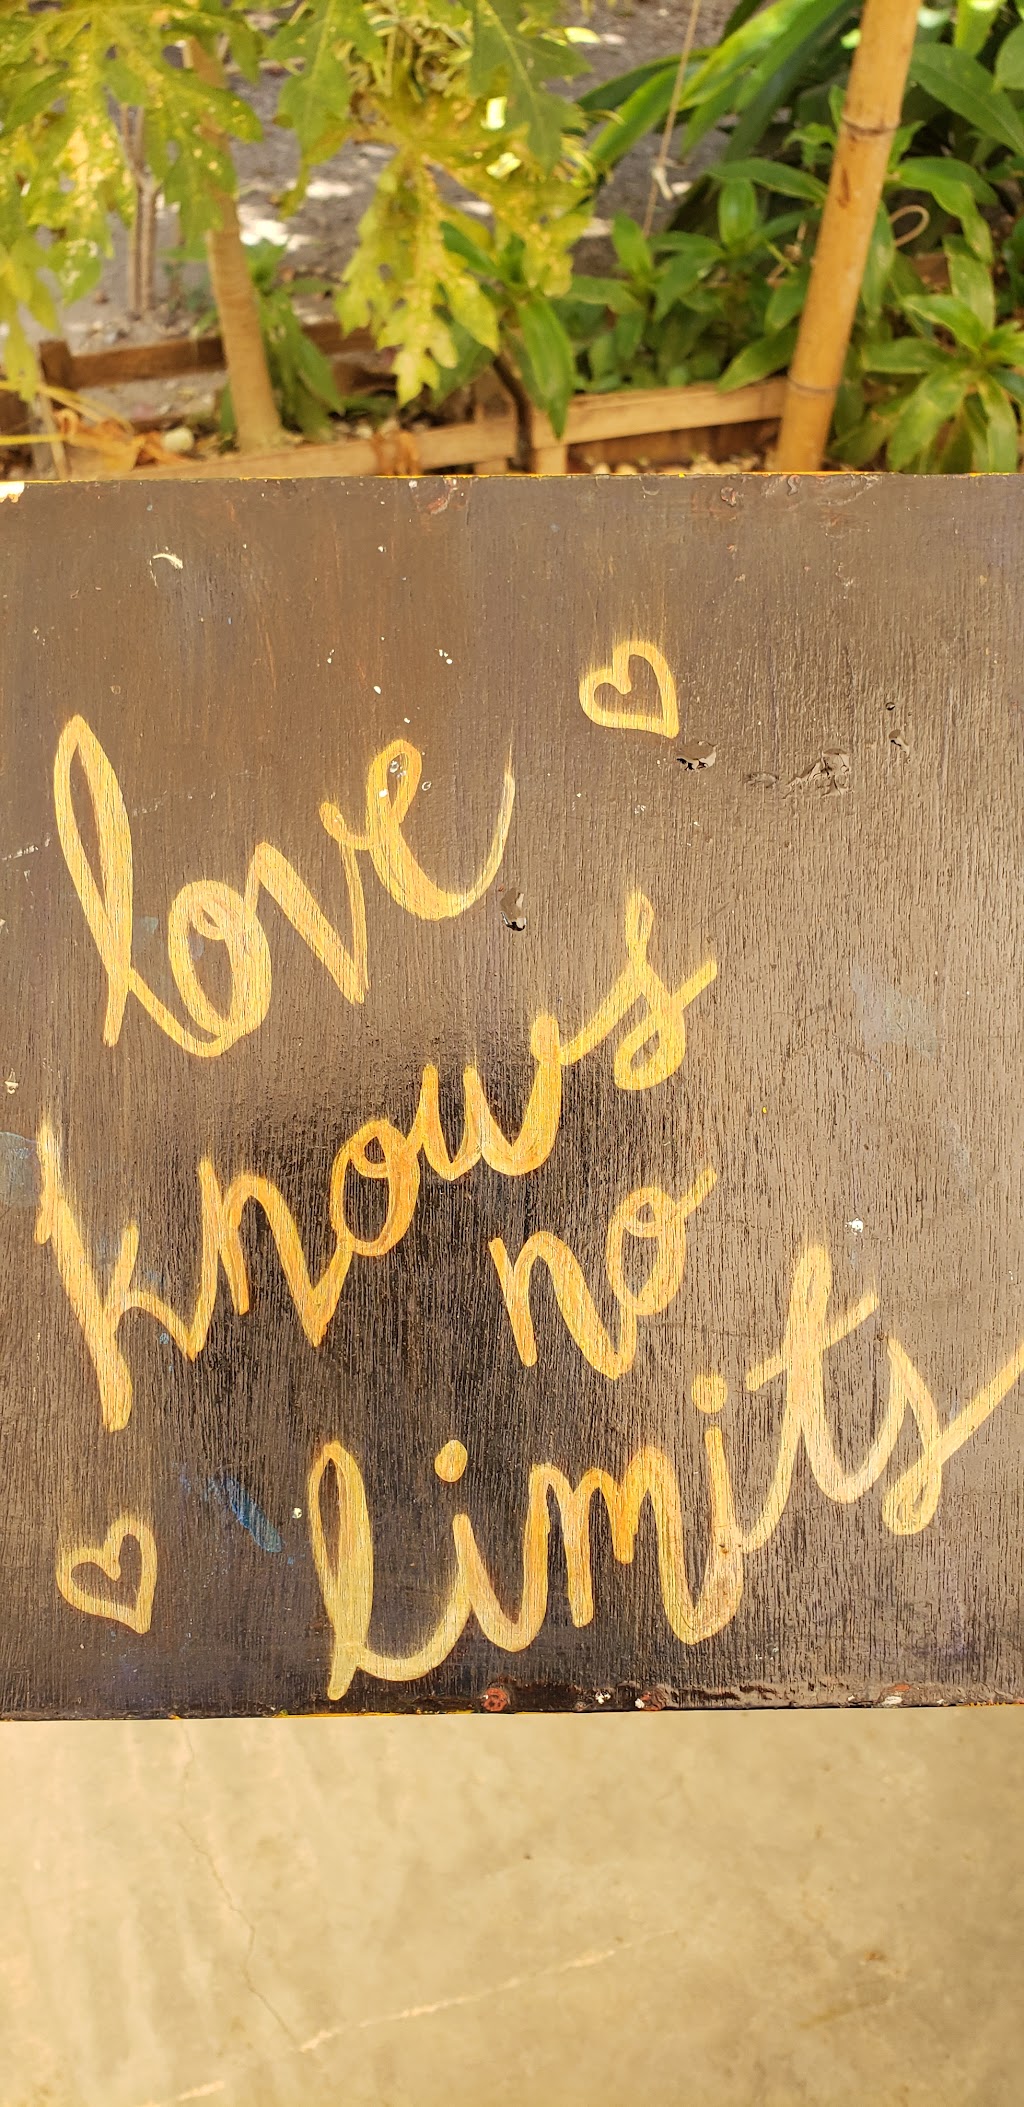 love
knows
no
limits